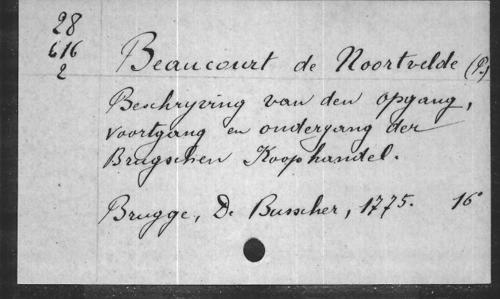 28
616
2
Beaucourt de Noortvelde (P.)
Beschryving van den opgang,
voortgang en ondergang der
Brugschen Koophandel.
Brugge, De Busscher, 1775. 16°